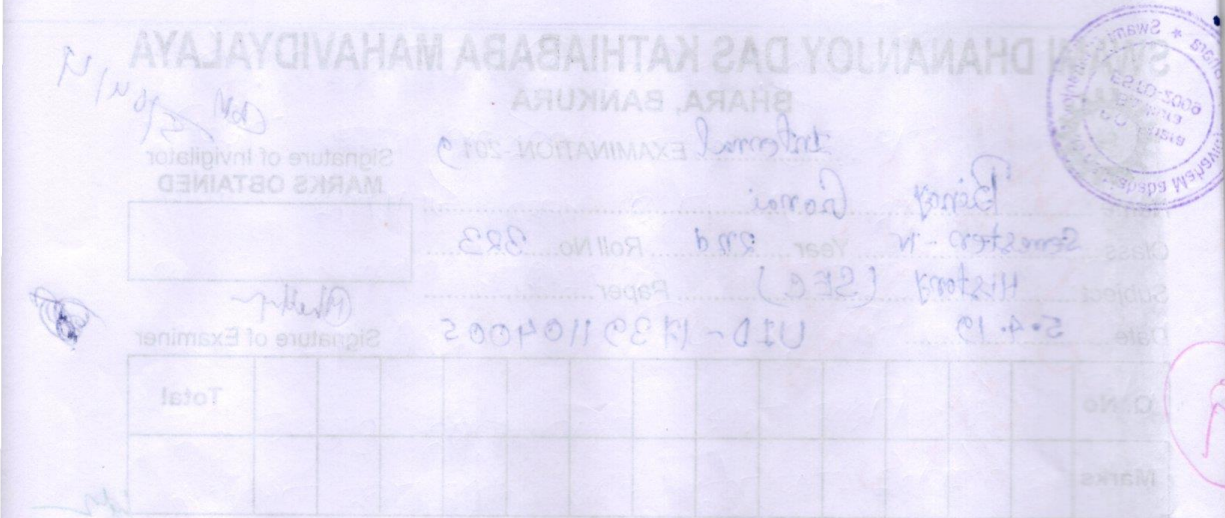 SWAMI DHANANJOY DAS KATHIABABA MAHAVIDYALAYA
BHARA, BANKURA
Internal EXAMINATION-2019
Signature of Invigilator
MARKS OBTAINED
Name Binoy Gorai
Class Semester - IV Year 2nd Roll No 323
Subject History (SEC) Paper
Date 5.4.19 UID-17391104005
Signature of Examiner
Q. No Total
Marks